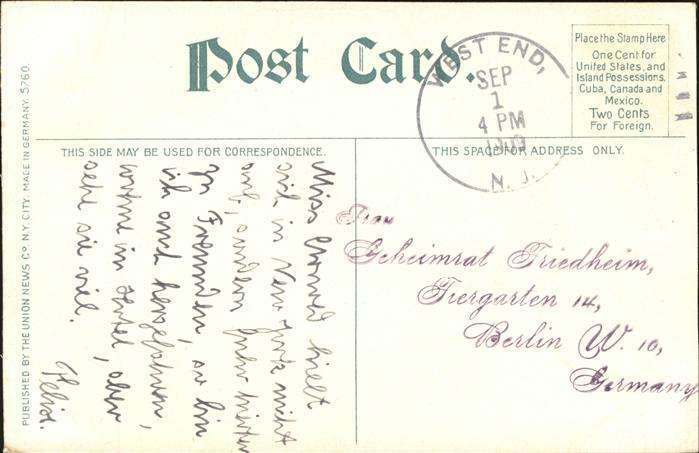 Post Card.
WEST END,
SEP
1
4 PM
1909
N. J.
Place the Stamp Here
One Cent for
United States, and
Island Possessions,
Cuba, Canada and
Mexico.
Two Cents
For Foreign.
THIS SIDE MAY BE USED FOR CORRESPONDENCE.
THIS SPACE FOR ADDRESS ONLY.
PUBLISHED BY THE UNION NEWS CO. N.Y. CITY. MADE IN GERMANY. 5760.
Miss hielt
sich in New York nicht
auf, sondern fuhr weiter
zu Freunden, so bin
ich auch
in Hotel, aber
sehe sie viel.
Felix.
Frau
Geheimrat Friedheim,
Tiergarten 14,
Berlin W. 10,
Germany